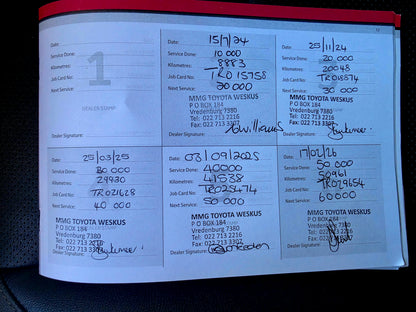 Date:
Service Done:
Kilometres:
Job Card No:
Next Service:
1
DEALER STAMP
Dealer Signature:
Date: 15/7/24
Service Done: 10 000
Kilometres: 8883
Job Card No: TR015758
Next Service: 20 000
MMG TOYOTA WESKUS
P O BOX 184
Vredenburg 7380
Tel: 022 713 2216
Fax: 022 713 3307
Dealer Signature:
Date: 25/11/24
Service Done: 20 000
Kilometres: 20048
Job Card No: TR018574
Next Service: 30 000
MMG TOYOTA WESKUS
P O BOX 184
Vredenburg 7380
Tel: 022 713 2216
Fax: 022 713 3307
Dealer Signature:
Date: 25/03/25
Service Done: 30 000
Kilometres: 29930
Job Card No: TR021628
Next Service: 40 000
MMG TOYOTA WESKUS
P O BOX 184
Vredenburg 7380
Tel: 022 713 2216
Fax: 022 713 3307
Dealer Signature:
Date: 03/09/2025
Service Done: 40000
Kilometres: 41538
Job Card No: TR025474
Next Service: 50 000
MMG TOYOTA WESKUS
P O BOX 184
Vredenburg 7380
Tel: 022 713 2216
Fax: 022 713 3307
Dealer Signature:
Date: 17/02/26
Service Done: 50 000
Kilometres: 50961
Job Card No: TR029654
Next Service: 60000
MMG TOYOTA WESKUS
P O BOX 184
Vredenburg 7380
Tel: 022 713 2216
Fax: 022 713 3307
Dealer Signature: